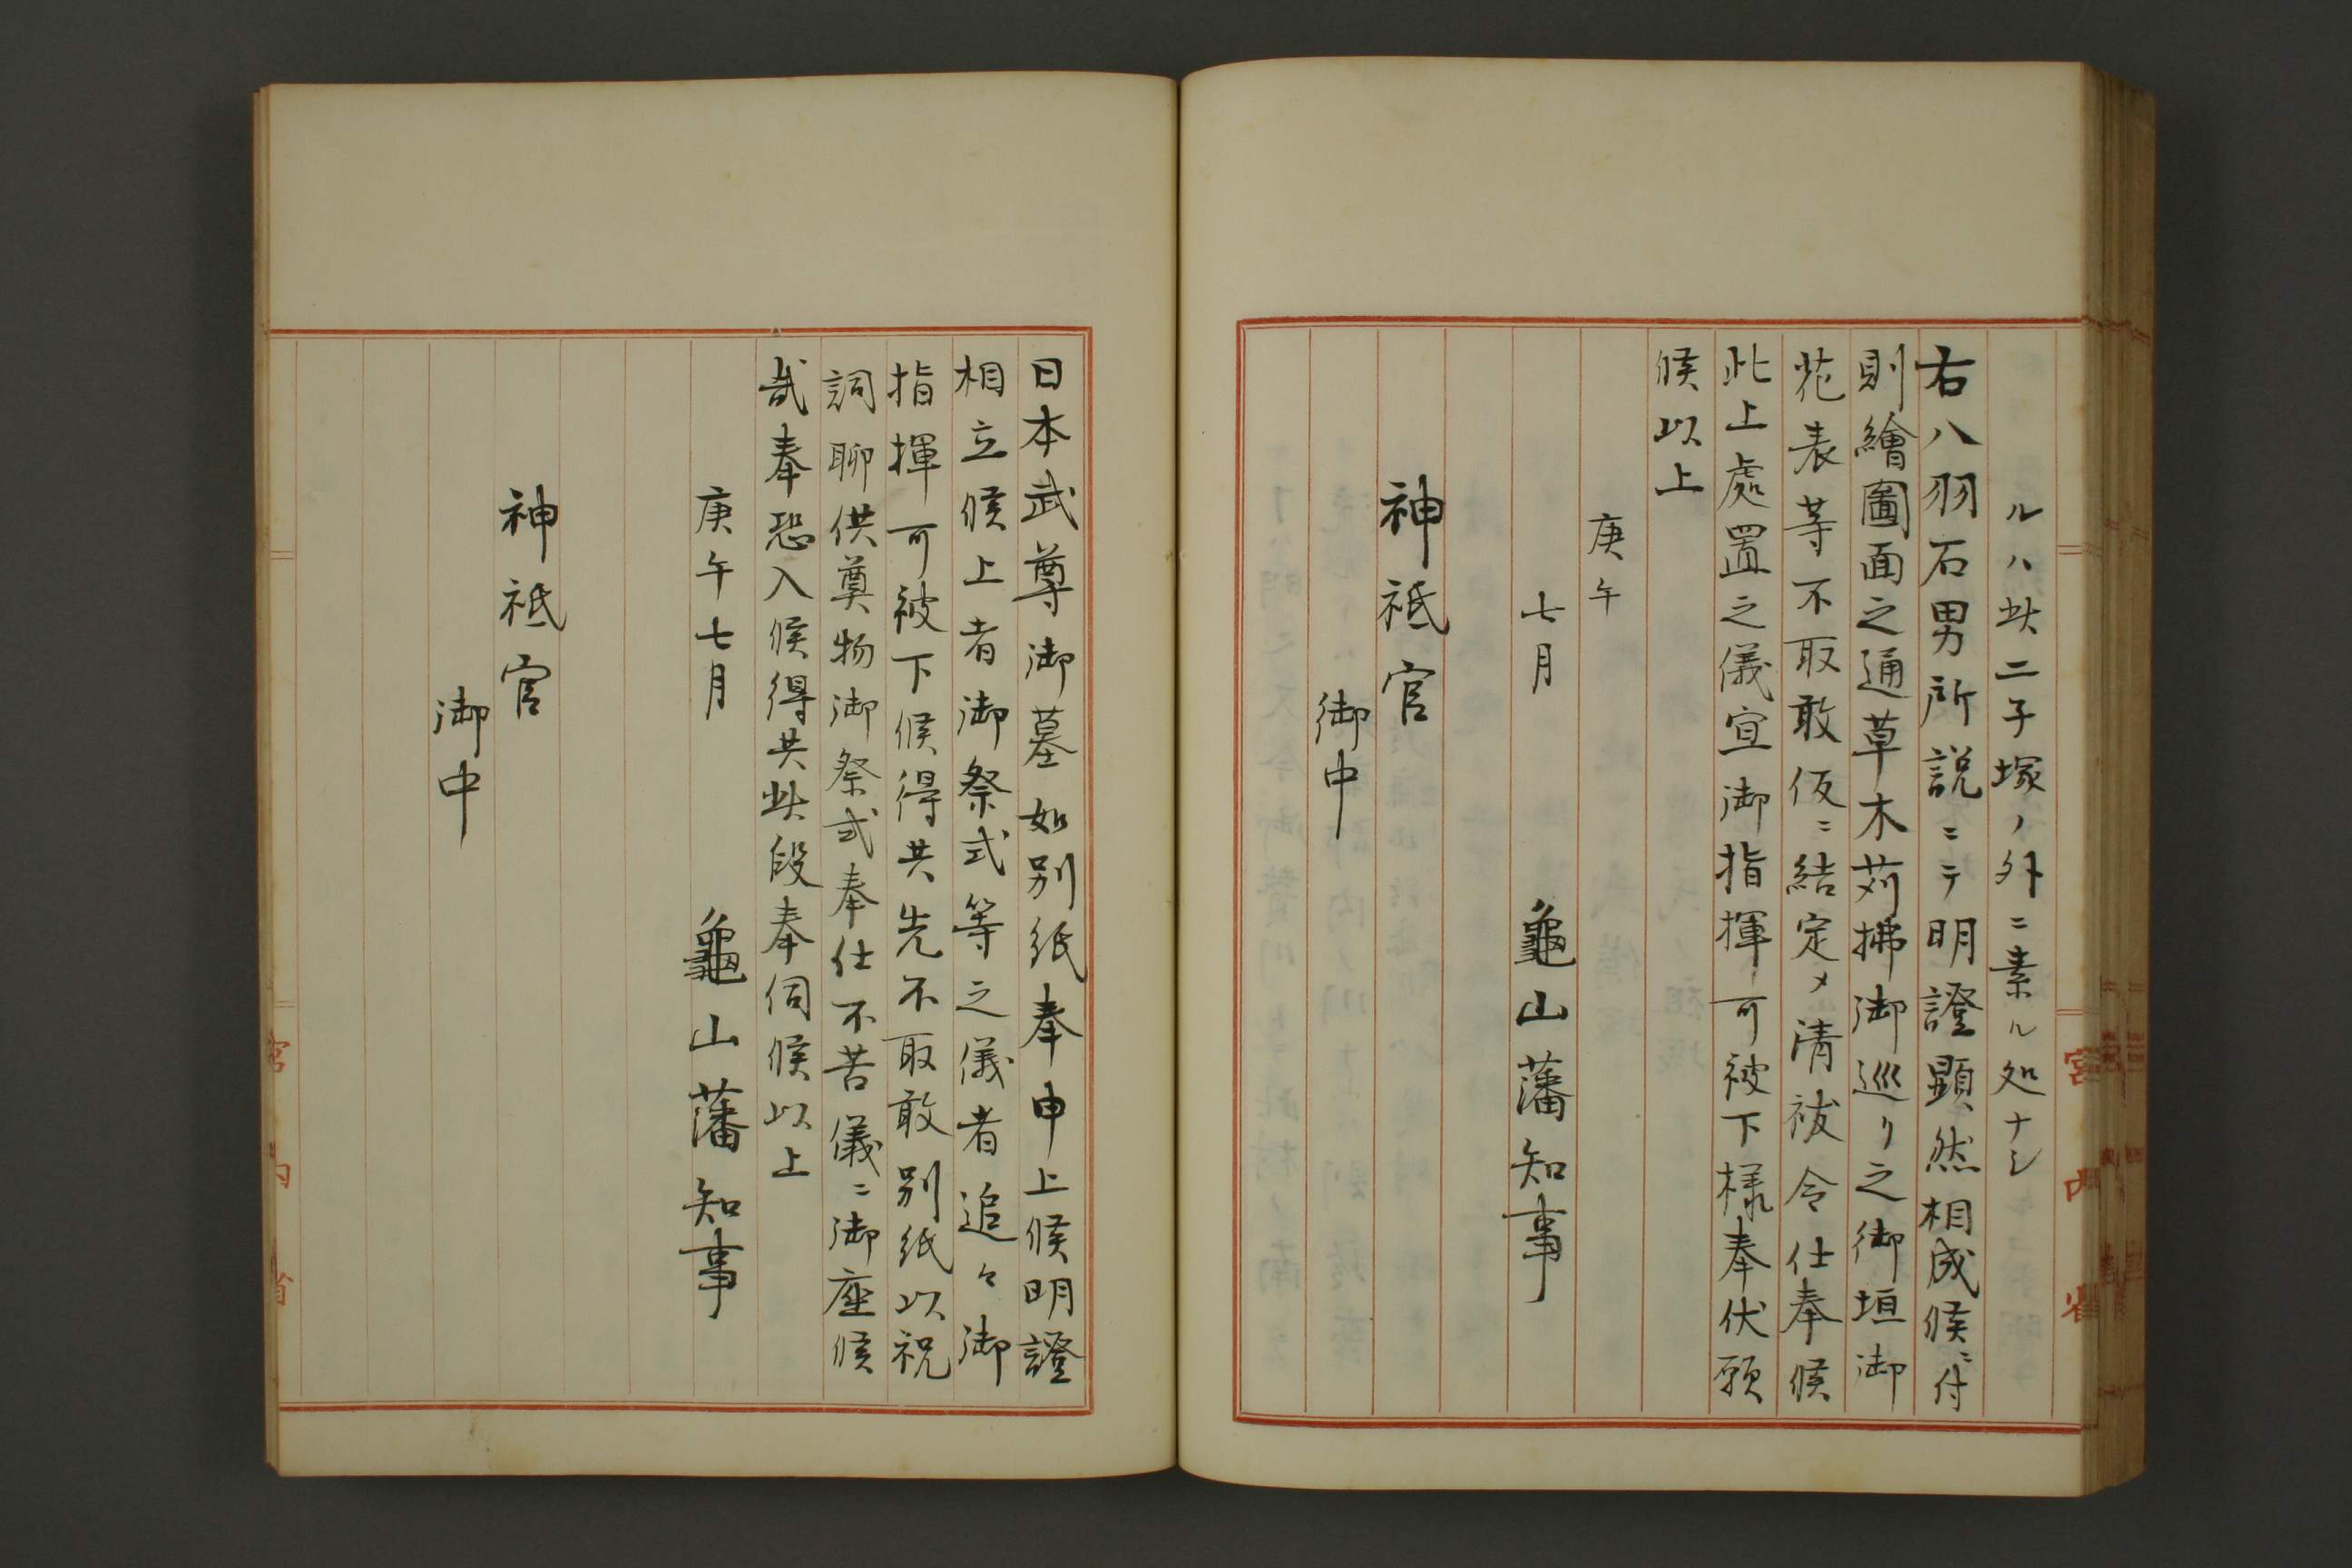 ルハ此二子塚ノ外ニ素ル処ナシ
右八羽石男所説ニテ明證顕然相成候ニ付
則繪圖面之通草木苅拂御巡リ之御垣御
花表等不取敢仮ニ結定メ清祓令仕奉候
此上處置之儀宜御指揮可被下様奉伏願
候以上
庚午
七月
龜山藩知事
神祇官
御中
宮内省
日本武尊御墓如別紙奉申上候明證
相立候上者御祭式等之儀者追々御
指揮可被下候得共先不取敢別紙以祝
詞聊供奠物御祭式奉仕不苦儀ニ御座候
哉奉恐入候得共此段奉伺候以上
庚午七月
龜山藩知事
神祇官
御中
宮内省